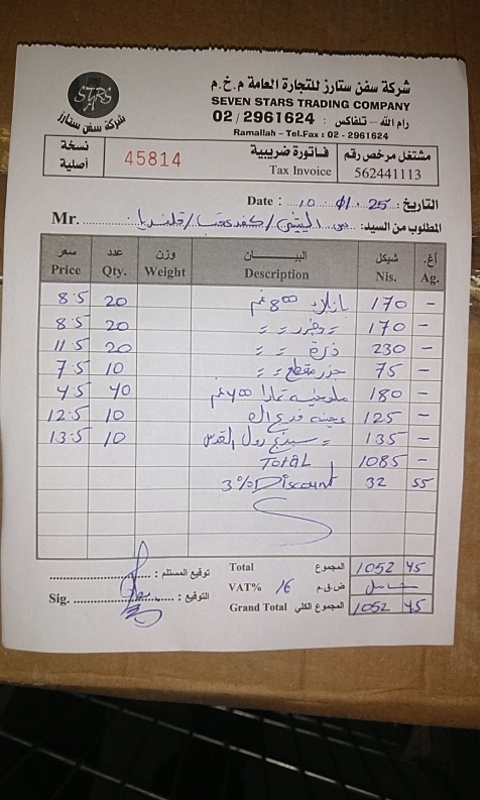 شركة سفن ستارز للتجارة العامة م.خ.م
SEVEN STARS TRADING COMPANY
رام الله – تلفاكس : 02/2961624
Ramallah – Tel.Fax : 02 - 2961624
STARS
شركة سفن ستارز
نسخة أصلية
45814
فاتورة ضريبية
Tax Invoice
مشتغل مرخص رقم
562441113
التاريخ: Date : 10 01. 25
المطلوب من السيد: كفر عقب / قلنديا Mr.
سعر عدد وزن البيــــان شيكل أغ.
Price Qty. Weight Description Nis. Ag.
8.5 20 بازلاء 800 غم 170 -
8.5 20 = = 170 -
11.5 20 ذرة = = 230 -
7.5 10 جزر مقطع = = 75 -
4.5 40 ملوخية 400 غم 180 -
12.5 10 عجينة 125 -
13.5 10 = رول القدس 135 -
TOTAL 1085 -
3% Discount 32 55
توقيع المستلم :
Total المجموع 1052 45
VAT% 16 ض.ق.م شامل
Sig. التوقيع :
Grand Total المجموع الكلي 1052 45